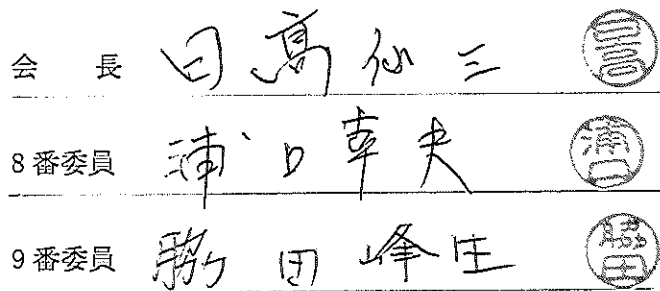 会長 日高仙三 日高
8番委員 浦口幸夫 浦口
9番委員 脇田峰生 脇田